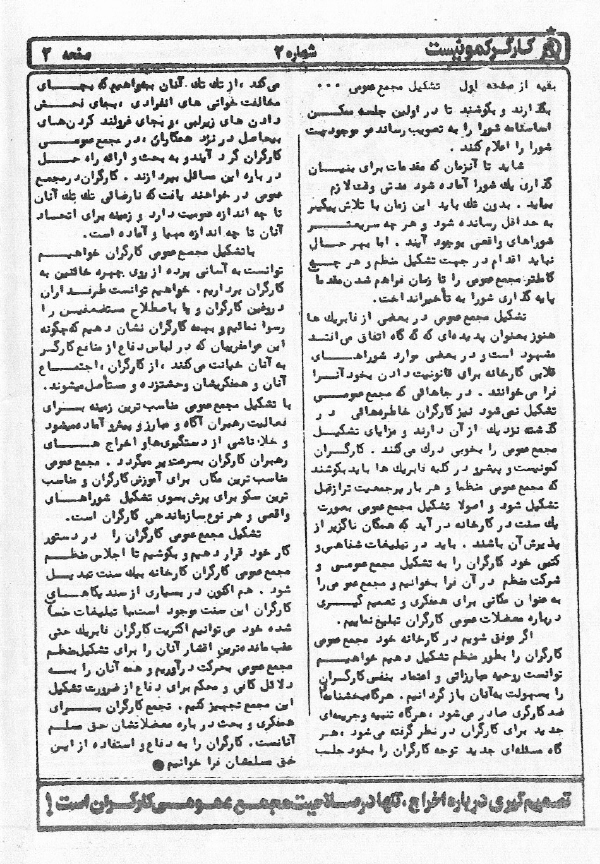 کارگر کمونیست
شماره ۲
صفحه ۲
بقیه از صفحه اول تشکیل مجمع عمومی ۰۰۰
بگذارند و بکوشند تا در اولین جلسه ممکن
اساسنامه شورا را به تصویب رسانده و موجودیت
شورا را اعلام کنند .
شاید تا آنزمان که مقدمات برای بنیان
گذاری یك شورا آماده شود مدتی وقت لازم
بیاید . بدون شك باید این زمان با تلاش پیگیر
به حداقل رسانده شود و هر چه سریعتر
شوراهای واقعی بوجود آیند . اما بهر حال
نباید اقدام در جهت تشکیل منظم و هر چه
کاملتر مجمع عمومی را تا زمان فراهم شدن مقدمات
پایه گذاری شورا به تأخیر انداخت .
تشکیل مجمع عمومی در بعضی از فابریك ها
هنوز بعنوان پدیده ای که گه گاه اتفاق می افتد
مشهود است و در بعضی موارد شوراهای
قلابی کارخانه برای قانونیت دادن بخود آنرا
فرا می خوانند . در جاهائی که مجمع عمومی
تشکیل نمی شود نیز کارگران خاطره هائی در
گذشته نزدیك از آن دارند و مزایای تشکیل
مجمع عمومی را بخوبی درك می کنند . کارگران
کمونیست و پیشرو در کلیه فابریك ها باید بکوشند
که مجمع عمومی منظما و هر بار پرجمعیت تر از قبل
تشکیل شود و اصولا تشکیل مجمع عمومی بصورت
یك سنت در کارخانه در آید که همگان ناگزیر از
پذیرش آن باشند . باید در تبلیغات شفاهی و
کتبی خود کارگران را به تشکیل مجمع عمومی و
شرکت منظم در آن فرا بخوانیم و مجمع عمومی را
به عنوان مکانی برای همفکری و تصمیم گیری
درباره معضلات عمومی کارگران تبلیغ نمائیم .
اگر موفق شویم در کارخانه خود مجمع عمومی
کارگران را بطور منظم تشکیل دهیم خواهیم
توانست روحیه مبارزاتی و اعتماد بنفس کارگران
را بسهولت به آنان باز گردانیم . هرگاه بخشنامه
ضد کارگری صادر می شود ، هرگاه تنبیه و جریمه ای
جدید برای کارگران در نظر گرفته می شود ، هر
گاه مسئله ای جدید توجه کارگران را بخود جلب
می کند ، از تك تك آنان بخواهیم که بجای
مخالفت خوانی های انفرادی ، بجای فحش
دادن های زیرلبی ، و بجای غرولند کردن های
بیحاصل در نزد همکاران ، در مجمع عمومی
کارگران گرد آیند و به بحث و ارائه راه حل
در باره این مسائل بپردازند . کارگران در مجمع
عمومی در خواهند یافت که نارضائی تك تك آنان
تا چه اندازه عمومیت دارد و زمینه برای اتحاد
آنان تا چه اندازه مهیا و آماده است .
با تشکیل مجمع عمومی کارگران خواهیم
توانست به آسانی پرده از روی چهره خائنین به
کارگران برداریم . خواهیم توانست طرفداران
دروغین کارگران و یا باصطلاح مستضعفین را
رسوا نمائیم و بهمه کارگران نشان دهیم که چگونه
این عوامفریبان که در لباس دفاع از منافع کارگر
به آنان خیانت می کنند ، از کارگران ، اجتماع
آنان و همفکریشان وحشتزده و مستأصل میشوند .
با تشکیل مجمع عمومی مناسب ترین زمینه برای
فعالیت رهبران آگاه و مبارز و پیشرو آماده میشود
و خلاء ناشی از دستگیری ها و اخراج های
رهبران کارگران بسرعت پر میگردد . مجمع عمومی
مناسب ترین مکان برای آموزش کارگران و مناسب
ترین سکو برای پرش بسوی تشکیل شوراهای
واقعی و هر نوع سازماندهی کارگران است .
تشکیل مجمع عمومی کارگران را در دستور
کار خود قرار دهیم و بکوشیم تا اجلاس منظم
مجمع عمومی کارگران کارخانه بیك سنت تبدیل
شود . هم اکنون در بسیاری از سندیکاهای
کارگران این سنت موجود است . با تبلیغات حساب
شده خود می توانیم اکثریت کارگران فابریك حتی
عقب مانده ترین اقشار آنان را برای تشکیل منظم
مجمع عمومی بحرکت درآوریم و همه آنان را به
دلائل کافی و محکم برای دفاع از ضرورت تشکیل
این مجمع تجهیز کنیم . تجمع کارگران برای
همفکری و بحث در باره معضلاتشان حق مسلم
آنانست . کارگران را به دفاع و استفاده از این
حق مسلمشان فرا خوانیم ●
تصمیم گیری درباره اخراج ، تنها در صلاحیت مجمع عمومی کارگران است !